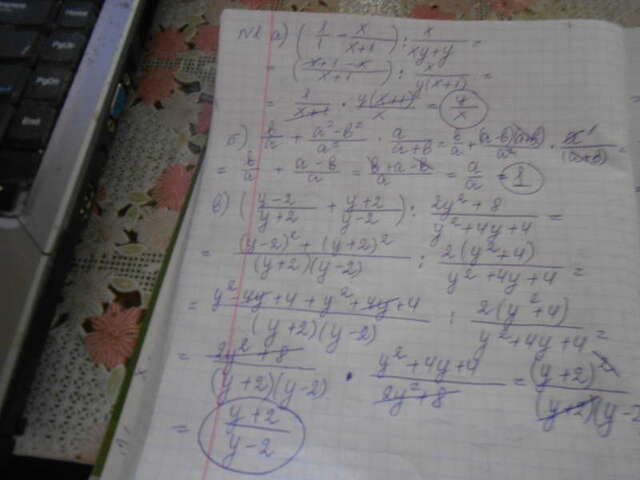 №1 а) (1/1 - x/(x+1)) : x/(xy+y) =
= ((x+1-x)/(x+1)) : x/(y(x+1)) =
= 1/(x+1) · y(x+1)/x = y/x
б) b/a + (a²-b²)/a² · a/(a+b) = b/a + (a-b)(a+b)/a² · a¹/(a+b) =
= b/a + (a-b)/a = (b+a-b)/a = a/a = 1
в) ((y-2)/(y+2) + (y+2)/(y-2)) : (2y²+8)/(y²+4y+4) =
= ((y-2)²+(y+2)²)/((y+2)(y-2)) : 2(y²+4)/(y²+4y+4) =
= (y²-4y+4+y²+4y+4)/((y+2)(y-2)) : 2(y²+4)/(y²+4y+4) =
= (2y²+8)/((y+2)(y-2)) · (y²+4y+4)/(2y²+8) = (y+2)²/((y+2)(y-2
= (y+2)/(y-2)